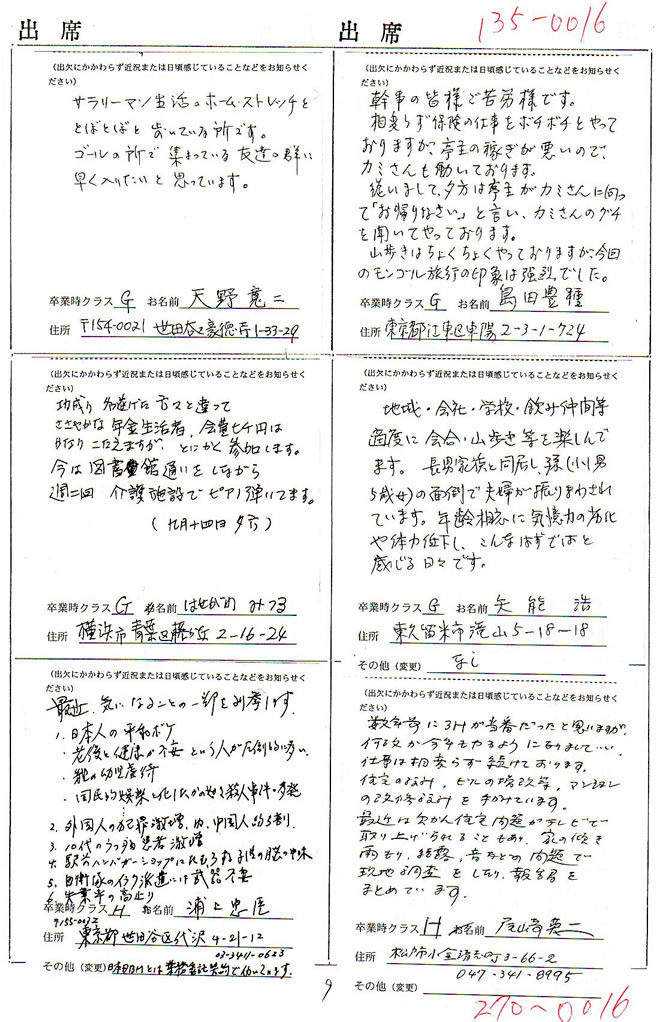 出席
(出欠にかかわらず近況または日頃感じていることなどをお知らせく
ださい)
サラリーマン生活のホーム・ストレッチを
とぼとぼと歩いている所です。
ゴールの所で集まっている友達の群に
早く入りたいと思っています。
卒業時クラス G お名前 天野寛二
住所 〒154-0021 世田谷区豪徳寺1-33-29
(出欠にかかわらず近況または日頃感じていることなどをお知らせく
ださい)
功成り 名遂げた 方々と違って
ささやかな年金生活者、会費七千円は
かなりこたえますが、とにかく参加します。
今は図書館通いをしながら
週二回 介護施設でピアノ弾いてます。
(九月十四日夕方)
卒業時クラス G お名前 はせがわ みつる
住所 横浜市青葉区藤が丘 2-16-24
(出欠にかかわらず近況または日頃感じていることなどをお知らせく
ださい)
最近、気になることの一部を列挙します。
1. 日本人の平和ボケ
・老後と健康が不安という人が圧倒的に多い
・親の幼児虐待
・国民的娯楽と化したかの如く殺人事件の多発
2. 外国人の犯罪激増、内、中国人約5割
3. 10代のうつ病患者激増
4. 駅前ハンバーガーショップにたむろする子供の
5. 自衛隊のイラク派遣には武器不要
6. 失業率の高止り
卒業時クラス H お名前 浦上忠
〒155-0032
住所 東京都世田谷区代沢 4-21-12
03-3411-0623
その他(変更) 日本IBMとは業務委託契約で働いています。
出席
135-0016
(出欠にかかわらず近況または日頃感じていることなどをお知らせく
ださい)
幹事の皆様ご苦労様です。
相変らず保険の仕事をボチボチとやって
おりますが、亭主の稼ぎが悪いので、
カミさんも働いております。
従いまして、夕方は亭主がカミさんに向って
「お帰りなさい」と言い、カミさんのグチ
を聞いてやっております。
山歩きはちょくちょくやっておりますが、今回
のモンゴル旅行の印象は強烈でした。
卒業時クラス G お名前 島田豊
住所 東京都江東区東陽 2-3-1-724
(出欠にかかわらず近況または日頃感じていることなどをお知らせく
ださい)
地域・会社・学校・飲み仲間等
適度に会合・山歩き等を楽しんで
ます。長男家族と同居し、孫(小1男
5歳女)の面倒で夫婦が振りまわされ
ています。年齢相応に気憶力の劣化
や体力低下し、こんなはずではと
感じる日々です。
卒業時クラス G お名前 矢能 浩
住所 東久留米市滝山5-18-18
その他(変更) なし
(出欠にかかわらず近況または日頃感じていることなどをお知らせく
ださい)
数年前に3Hが当番だったと思いますが、
何故か今年もやるようになりまして…。
仕事は相変らず続けております。
住宅のなやみ、ビルの増改築、マンション
の改修なやみを手がけています。
最近は欠かん住宅問題がテレビで
取り上げられることもあり、家の傾き
雨もり、結露、音などの問題で
現地調査をしたり、報告書を
まとめています。
卒業時クラス H お名前 尾崎英二
住所 松戸市小金清志町3-66-2
047-341-8995
その他(変更)
270-0016
9